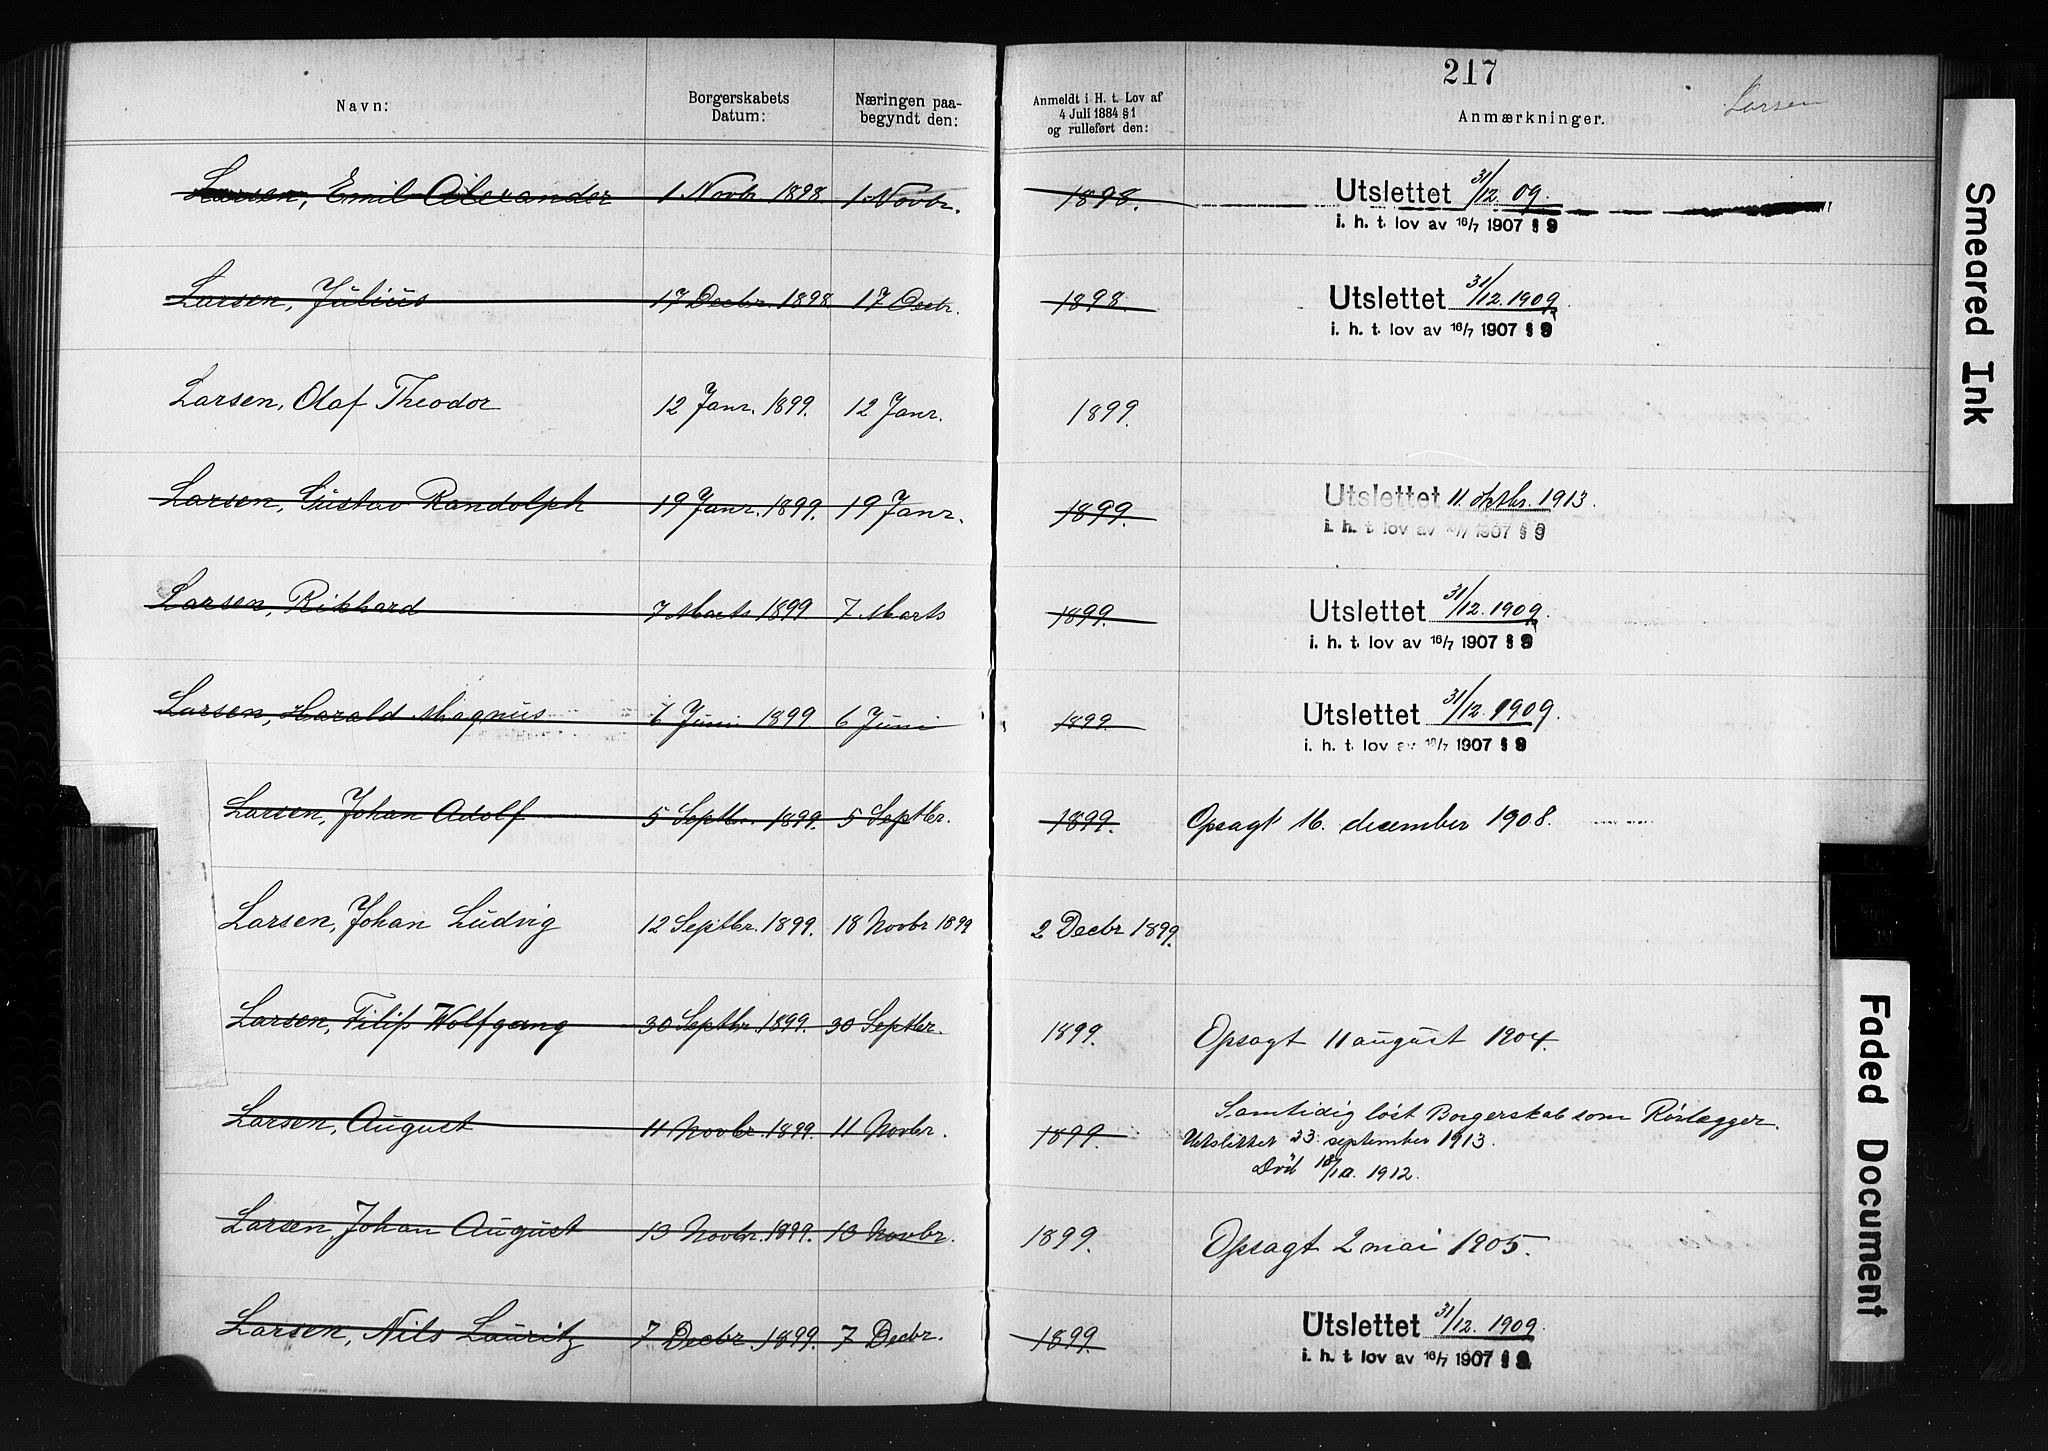 217
Larsen
Navn: Borgerskabets Datum: Næringen paabegyndt den: Anmeldt i H. t. Lov af 4 Juli 1884 § 1 og rulleført den: Anmærkninger.
Larsen, Emil Alexander 1. Novbr. 1898 1. Novbr. 1898. Utslettet 31/12. 09.
i. h. t. lov av 16/7 1907 § 9
Larsen, Julius 17 Decbr. 1898 17 Decbr. 1898. Utslettet 31/12. 1909.
i. h. t. lov av 16/7 1907 § 9
Larsen, Olaf Theodor 12 Janr. 1899. 12 Janr. 1899.
Larsen, Gustav Randolph 19 Janr. 1899. 19 Janr. 1899. Utslettet 11. oktbr. 1913.
i. h. t. lov av 16/7 1907 § 9
Larsen, Rikhard 7 Marts 1899 7 Marts 1899. Utslettet 31/12. 1909.
i. h. t. lov av 16/7 1907 § 9
Larsen, Harald Magnus 6 Juni 1899 6 Juni 1899. Utslettet 31/12. 1909.
i. h. t. lov av 16/7 1907 § 9
Larsen, Johan Adolf 5 Septbr. 1899. 5 Septbr. 1899. Opsagt 16. december 1908.
Larsen, Johan Ludvig 12 Septbr. 1899. 18 Novbr 1899 2 Decbr 1899.
Larsen, Filip Wolfgang 30 Septbr. 1899. 30 Septbr. 1899. Opsagt 11 august 1904.
Larsen, August 11 Novbr. 1899. 11 Novbr. 1899. Samtidig løst Borgerskab som Rørlægger.
Utslettet 23. september 1913.
Død 1912.
Larsen, Johan August 13 Novbr. 1899. 13 Novbr. 1899. Opsagt 2 mai 1905.
Larsen, Nils Lauritz 7 Decbr. 1899. 7 Decbr. 1899. Utslettet 31/12. 1909.
i. h. t. lov av 16/7 1907 § 9
Smeared Ink
Faded Document